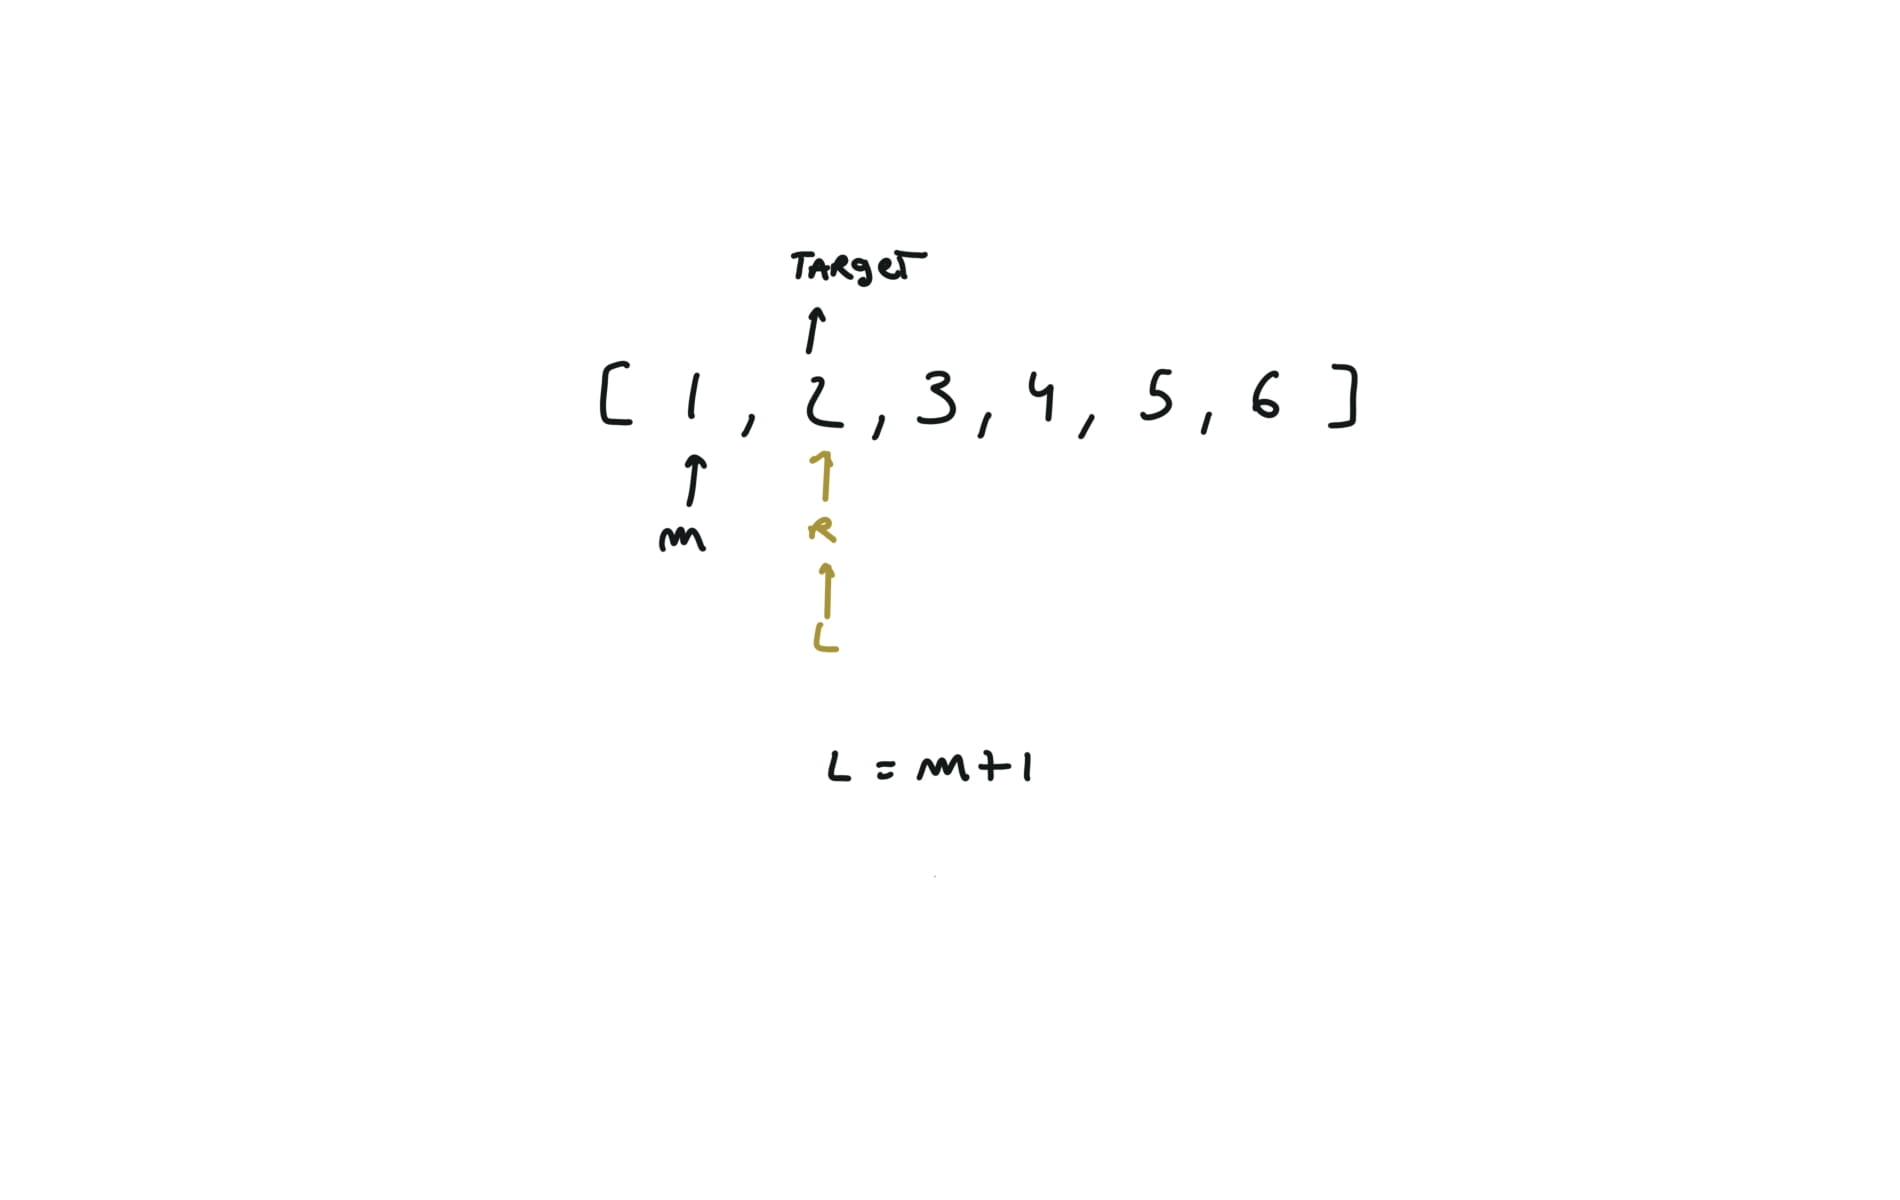 TARgeT
[ 1 , 2 , 3 , 4 , 5 , 6 ]
m R
L
L = m + 1